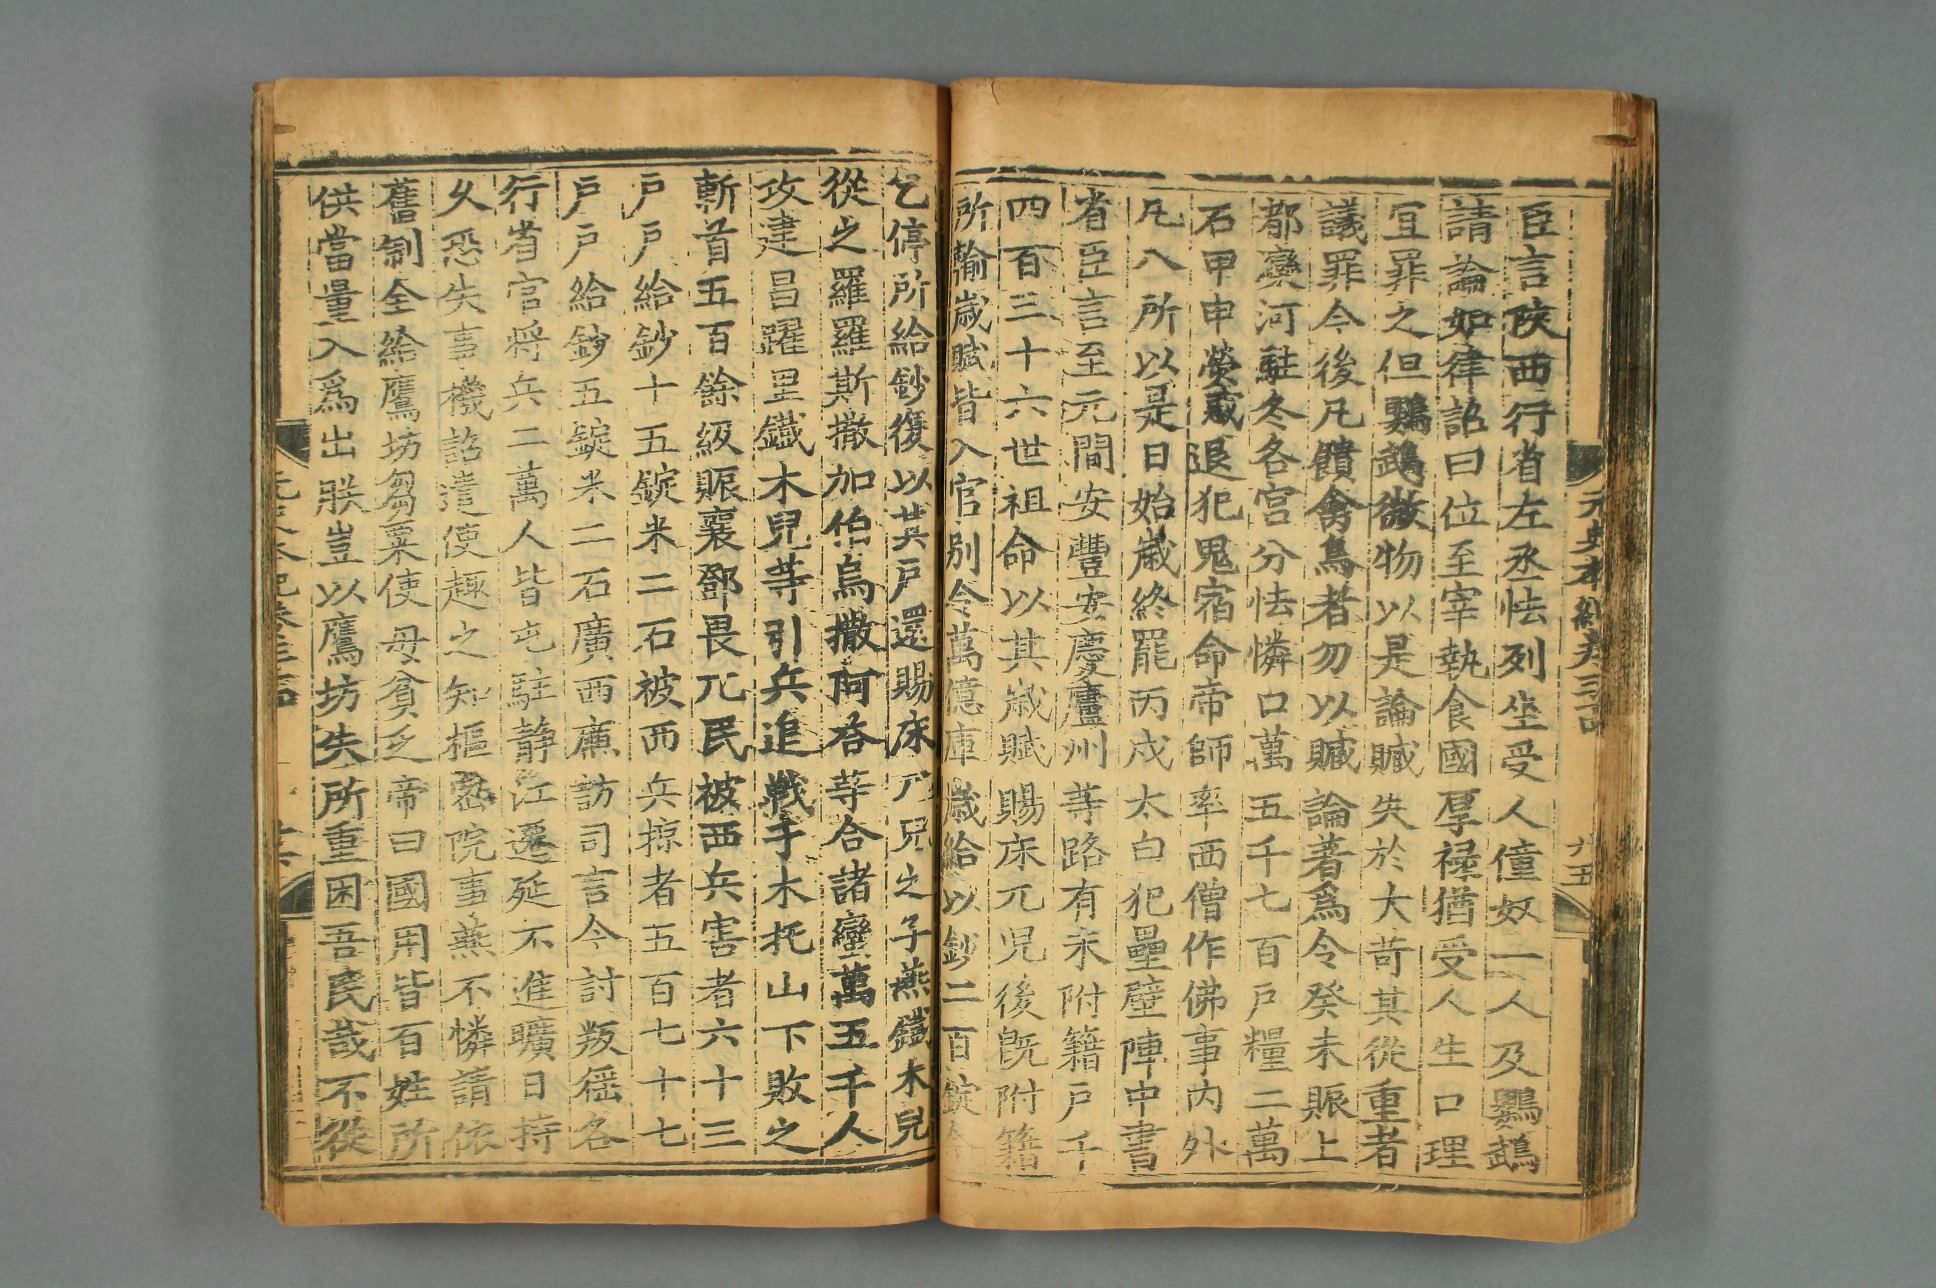 元史本紀卷三四
六五
臣言陜西行省左丞怯列坐受人僮奴一人及鸚鵡
請論如律詔曰位至宰執食國厚祿猶受人生口理
宜罪之但鸚鵡微物以是論贓失於大苛其從重者
議罪今後凡饋禽鳥者勿以贓論著爲令癸未賑上
都灤河駐冬各宮分怯憐口萬五千七百戶糧二萬
石甲申熒惑退犯鬼宿命帝師率西僧作佛事內外
凡八所以是日始歲終罷丙戌太白犯壘壁陣中書
省臣言至元間安豐安慶廬州等路有未附籍戶千
四百三十六世祖命以其歲賦賜床兀兒後旣附籍
所輸歲賦皆入官別令萬億庫歲給以鈔二百錠今
乞停所給鈔復以其戶還賜床兀兒之子燕鐵木兒
從之羅羅斯撒加伯烏撒阿荅等合諸蠻萬五千人
攻建昌躍里鐵木兒等引兵追戰于木托山下敗之
斬首五百餘級賑襄鄧畏兀民被西兵害者六十三
戶戶給鈔十五錠米二石被西兵掠者五百七十七
戶戶給鈔五錠米二石廣西廉訪司言今討叛猺各
行省官將兵二萬人皆屯駐靜江遷延不進曠日持
久恐失事機詔遣使趣之知樞密院事燕不憐請依
舊制全給鷹坊芻粟使毋貧乏帝曰國用皆百姓所
供當量入爲出朕豈以鷹坊失所重困吾民哉不從